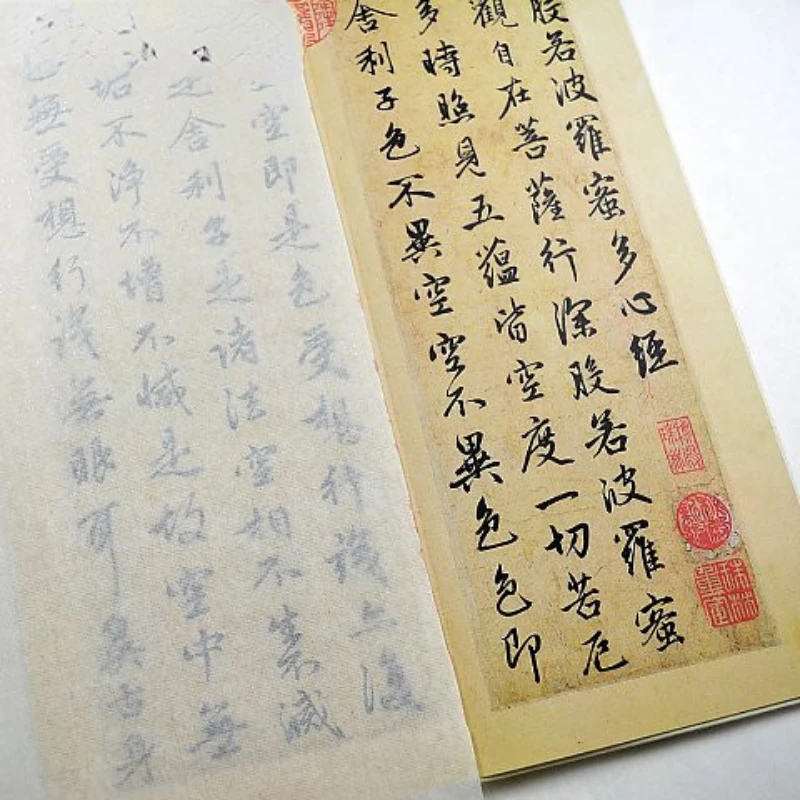 般若波羅蜜多心經
觀自在菩薩行深般若波羅蜜
多時照見五蘊皆空度一切苦厄
舍利子色不異空空不異色色即
空即是色受想行識亦復
是舍利子是諸法空相不生不滅
垢不淨不增不減是故空中無
無受想行識無眼耳鼻舌身